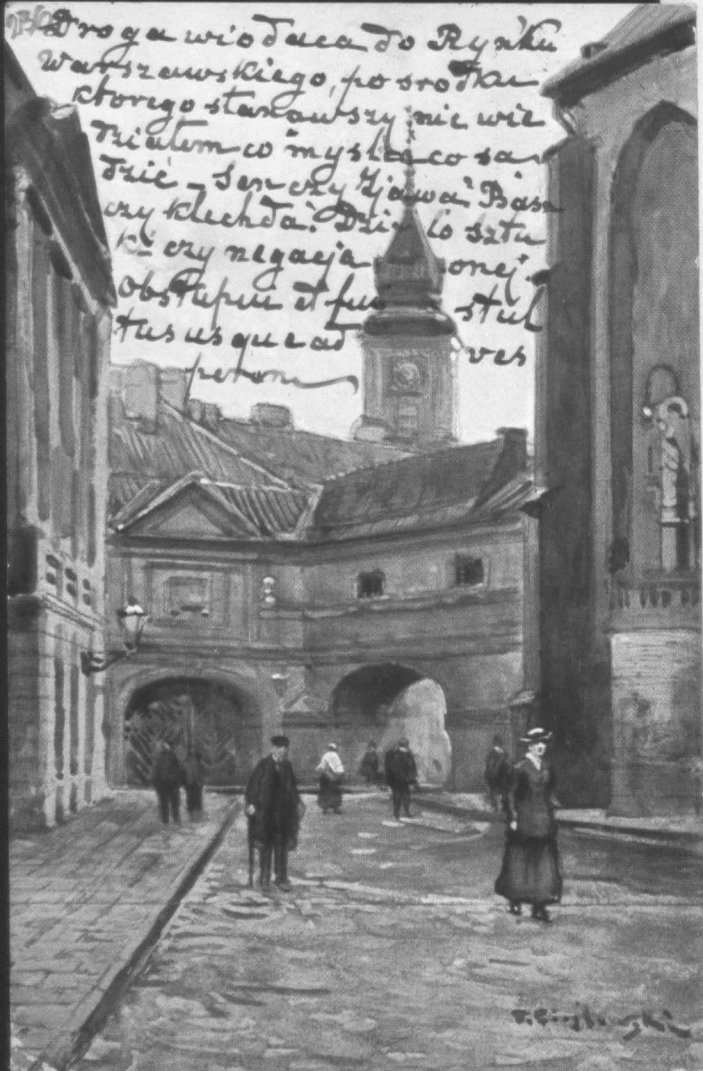 Droga wiodaca do Rynku
Warszawskiego, po srodku
ktorego stanawszy nie wie
działem co mysleć co są
dzić – Sen czy Zjawa? Basń
czy klechda? Dzieło sztu
ki czy negacja onej.
Obstupui et fui stul
tus usque ad ves
T. Cieślewski